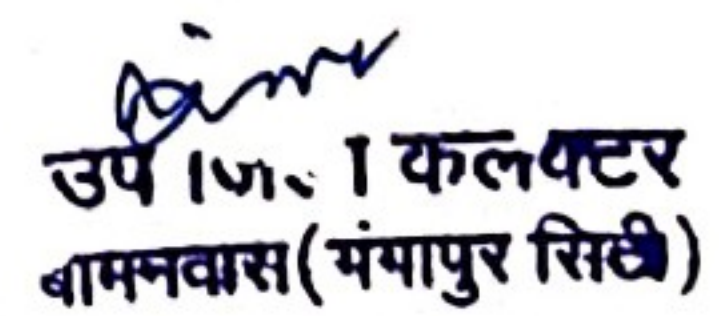 उप जिला कलक्टर
बामनवास (गंगापुर सिटी)